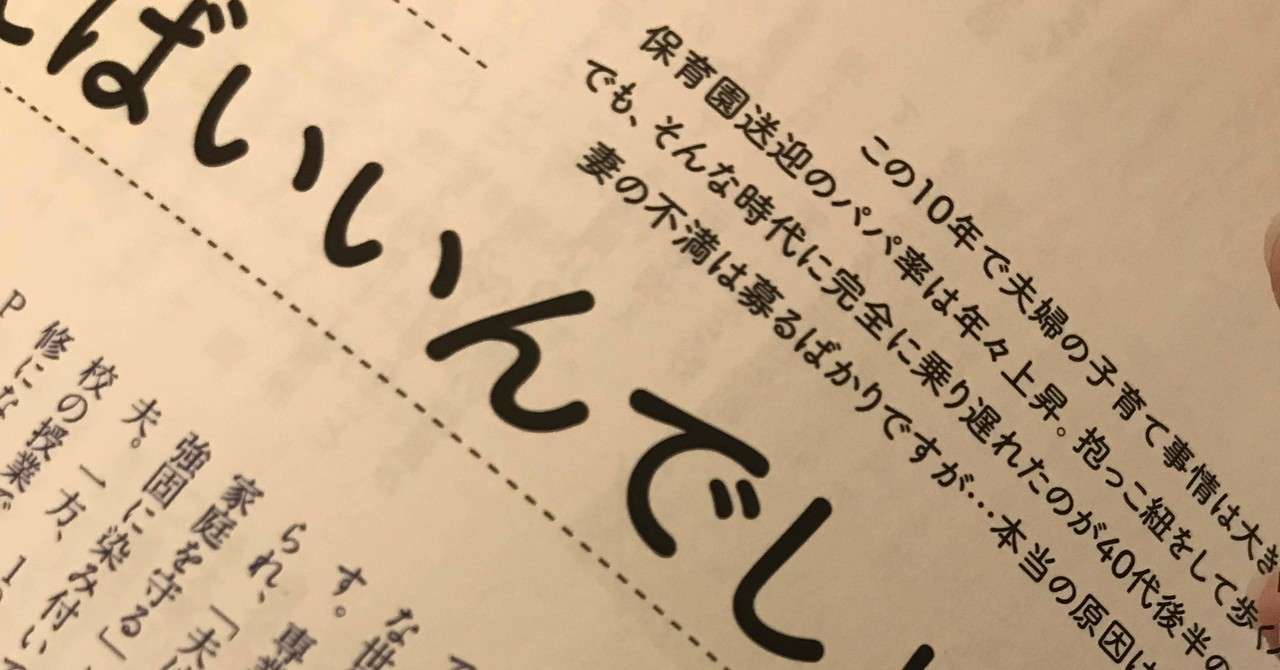 ばいいんでし
この10年で夫婦の子育て事情は大き
保育園送迎のパパ率は年々上昇。抱っこ紐をして歩く
でも、そんな時代に完全に乗り遅れたのが40代後半の
妻の不満は募るばかりですが…本当の原因は
な世
す。
られ、専業
家庭を守る」
強固に染み付い
夫。一方、
校の授業で
修にな